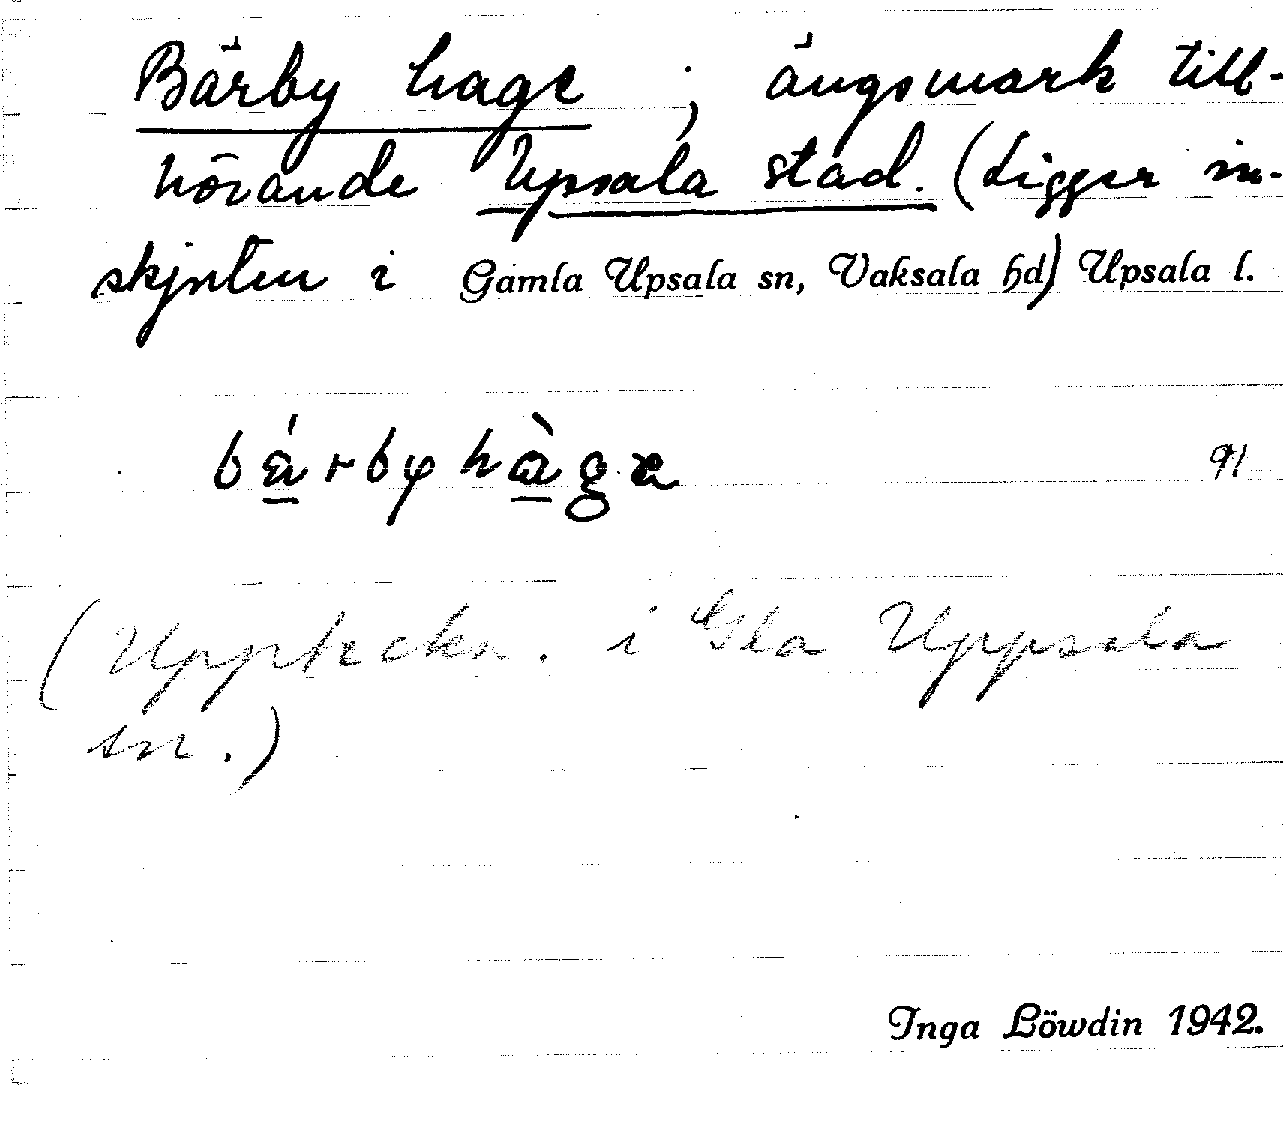 Bärby hage ; ängsmark till-
hörande Upsala stad. (Ligger in-
skjuten i Gamla Upsala sn, Vaksala hd) Upsala l.
bá̱rbyhà̱gɐ 91
(Uppteckn. i Gla Uppsala
sn.)
Inga Löwdin 1942.